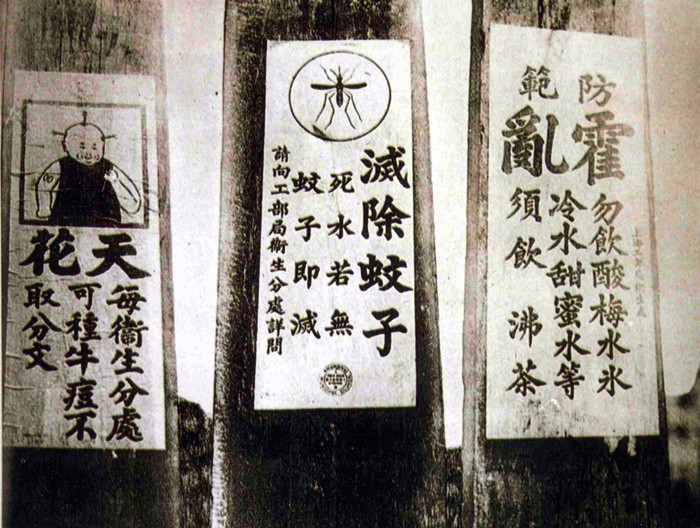 天花
每衞生分處
可種牛痘不
取分文
滅除蚊子
死水若無
蚊子即滅
請向工部局衞生分處詳問
防範
霍亂
勿飲酸梅水氷
冷水甜蜜水等
須飲沸茶
上海工部局衞生處